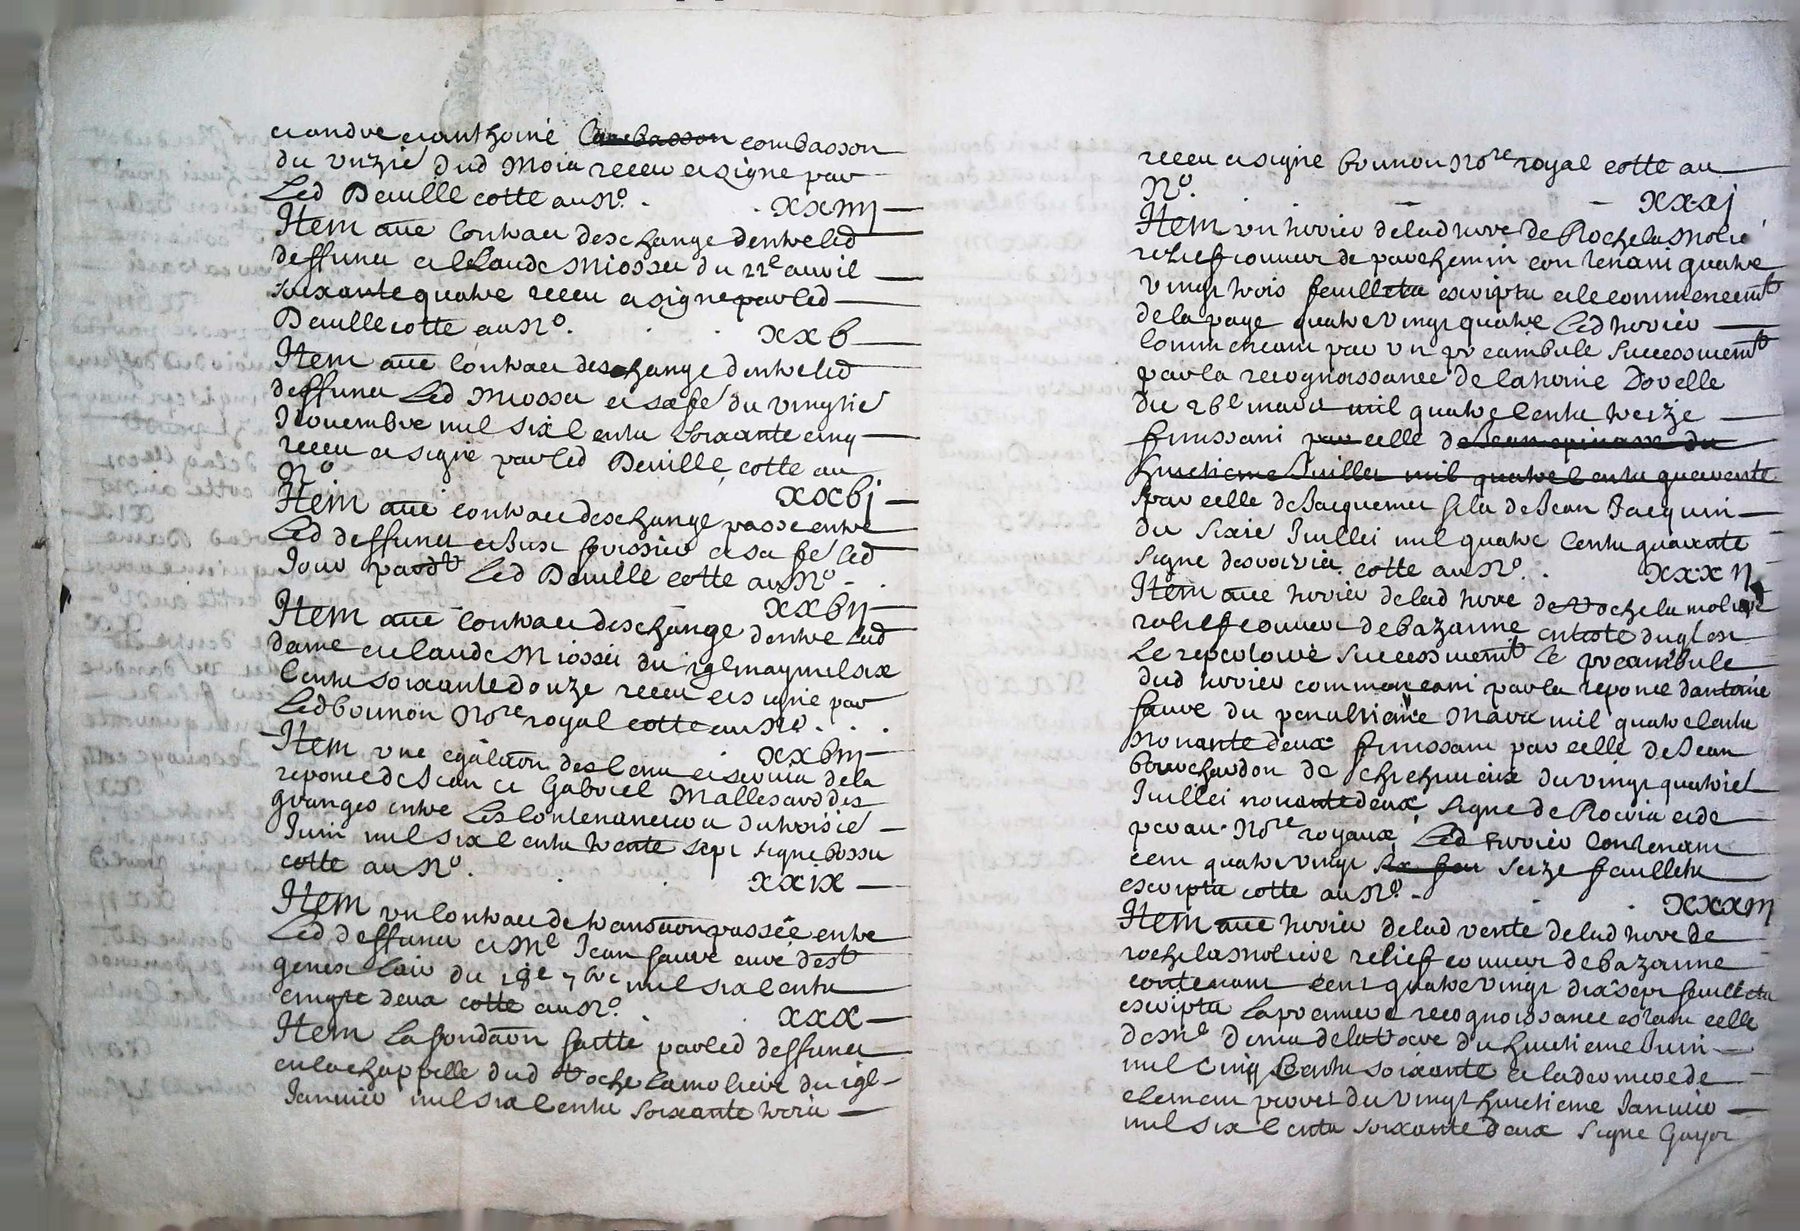 et andre et anthoine Combasson combasson
du unzie dud Mois receu et signe par
Led Deville cotte au No. xxiiij
Item aue Contract deschange dentre led
deffunct et Claude Miossee du 22e auril
soixante quatre receu et signe par led
Deuille cotte au No. xxb
Item aue Contract deschange dentre led
deffunct Led Miossee et sa fe du vingtie
Nouembre mil six Centz soixante cinq
receu et signe par led Deuille, cotte au
No xxbj
Item aue contract deschange passe entre
Led deffunct et et sa fe led
Jour pardt Led Deuille cotte au No.
xxbij
Item aue Contract deschange dentre lad
dame et Claude Miossee du 19e may mil six
Centz soixante douze receu et signe par
Led bounon Nore royal cotte au No.
xxbiij
Item une egalaon des Cens et seruis de la
reponce de Jean et Gabriel Mallesard des
granges entre Les Contenanciers du troisie
Juin mil six Centz trente sept signe bossu
cotte au No. xxix
Item un Contract de transaaon passée entre
Led deffunct et Me Jean faure cure dest
genest Lair du 18e 7bre mil six Centz
cinqte deux cotte au No. xxx
Item La fondaon faitte par led deffunct
en la chappelle dud Roche la moliere du 19e
Januier mil six Centz soixante trois
receu et signe bounon Nore royal cotte au
No. xxxj
Item un terrier de lad terre de Roche la Moliere
relief couuert de parchemin contenant quatre
vingt trois feuilletz escriptz et le commencemt
de la page quatre vingt quatre Led terrier
Commencant par un preambule successiuemt
par la recognoissance de Dovelle
du 26e mars mil quatre Centz treize
finissant par celle de Jean espinasse du
huictieme Juillet mil quatre Centz quarente
par celle de Jacquemet filz de Jean Jacquin
du sixie Juillet mil quatre Centz quarente
signe cotte au No. xxxij
Item aue terrier de lad terre de Roche la moliere
relief couuert de bazanne
Le successiuemt le preambule
dud terrier commencant par la reponce dantoine
faure du penultieme Mars mil quatre Centz
Nonante deux finissant par celle de Jean
bouchardon de du vingt quatrie
Juillet nonante deux, signe de et de
Nore royaux, Led terrier Contenant
cent quatre vingt six feu seize feuilletz
escriptz cotte au No. xxxiij
Item aue terrier de lad rente de lad terre de
roche la moliere relief couuert de bazanne
contenant cent quatre vingt dix sept feuilletz
escriptz La premiere recognoissance estant celle
de Me de la du huictieme Juin
mil Cinq Centz soixante et la derniere de
clement du vingt huictieme Januier
mil six Centz soixante deux signe Gayot